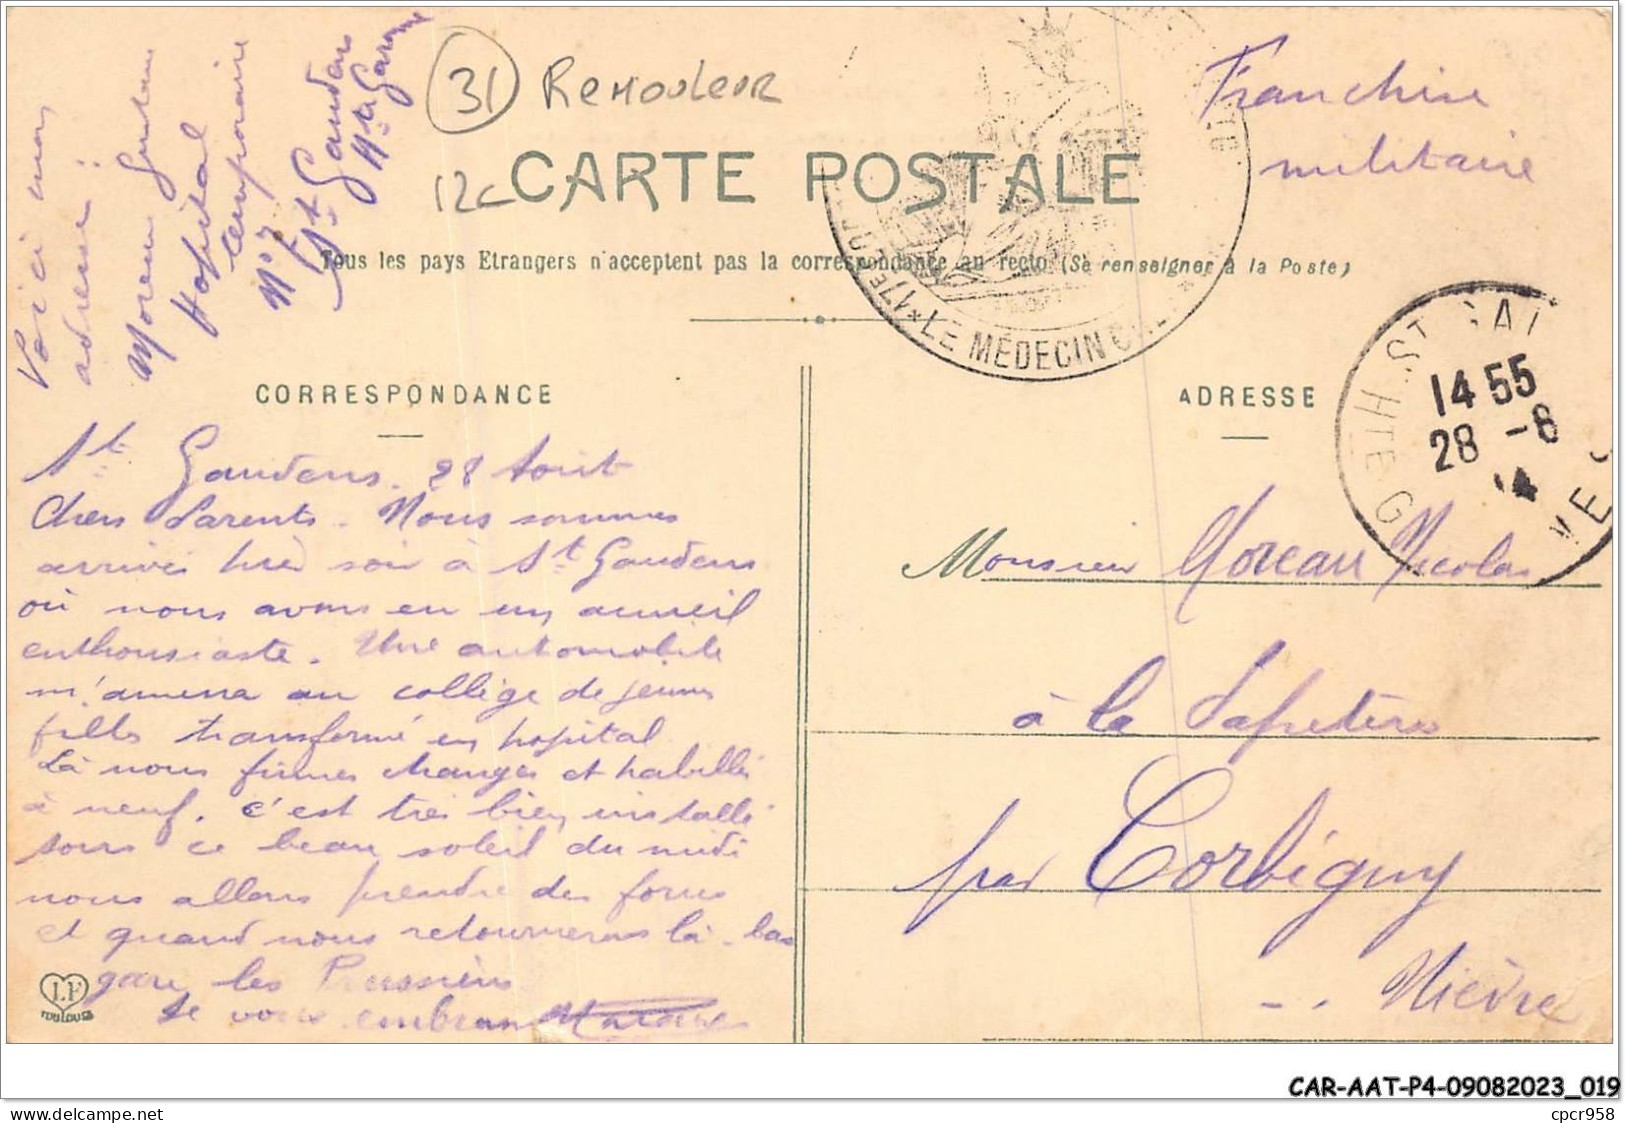 Voici mon
adresse :
Moreau Gustave
Hopital
temporaire
N° 7
St Gaudens
Hte Garonne
31 Remouleur
12c
Franchise
militaire
CARTE POSTALE
Tous les pays Etrangers n'acceptent pas la correspondance au recto (Se renseigner à la Poste)
17E
* LE MÉDECIN
CORRESPONDANCE
ADRESSE
ST GAU
HTE G
14 55
28 -8
14
St Gaudens. 28 Aout
Chers Parents. Nous sommes
arrivés hier soir à St Gaudens
où nous avons eu un acueil
enthousiaste. Une automobile
m'amena au collège de jeunes
filles transformé en hopital
Là nous fumes changés et habillés
à neuf. c'est très bien installé
sous ce beau soleil du midi
nous allons prendre des forces
et quand nous retournerons là-bas
gare les Prussiens
Je vous embrasse
LF
TOULOUSE
Monsieur Moreau Nicolas
à la Papeterie
par Corbigny
Nièvre
CAR-AAT-P4-09082023_019
delcampe.net
cpcr958